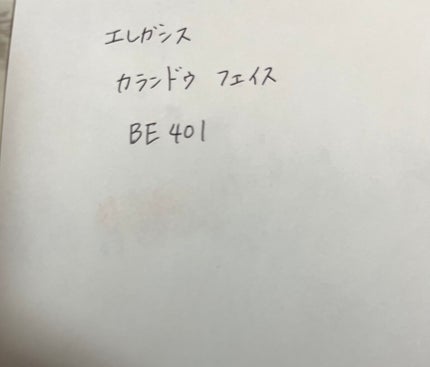 エレガシス
カランドゥ フェイス
BE 401